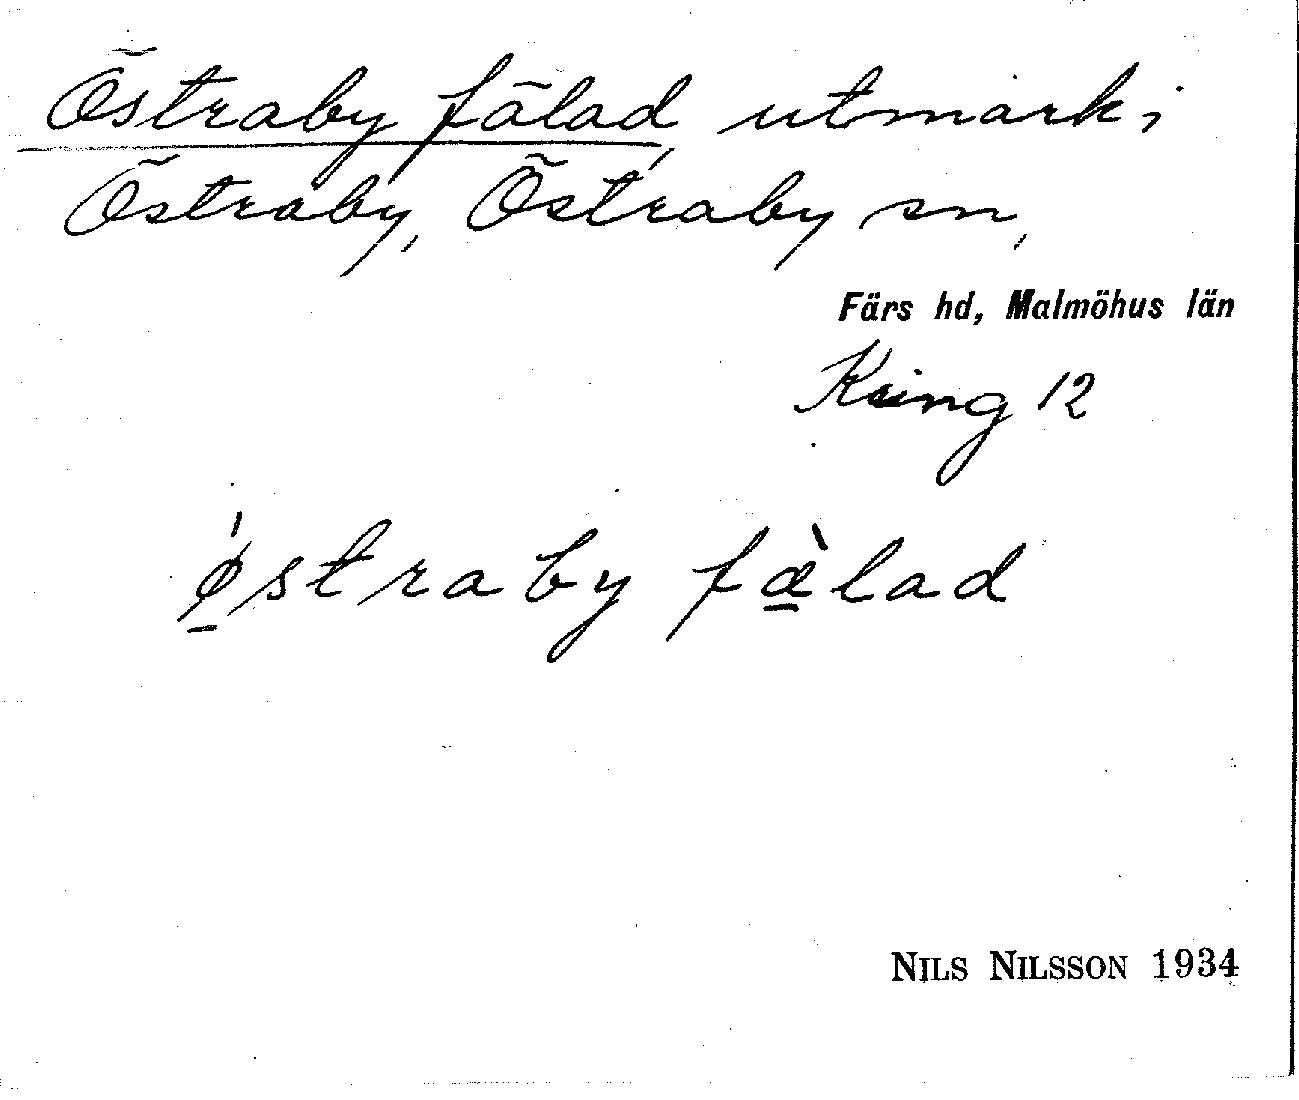 Östraby fälad utmark i
Östraby, Östraby sn,
Färs hd, Malmöhus län
Kring 12
ǿ̱straby fæ̱̀lad
NILS NILSSON 1934